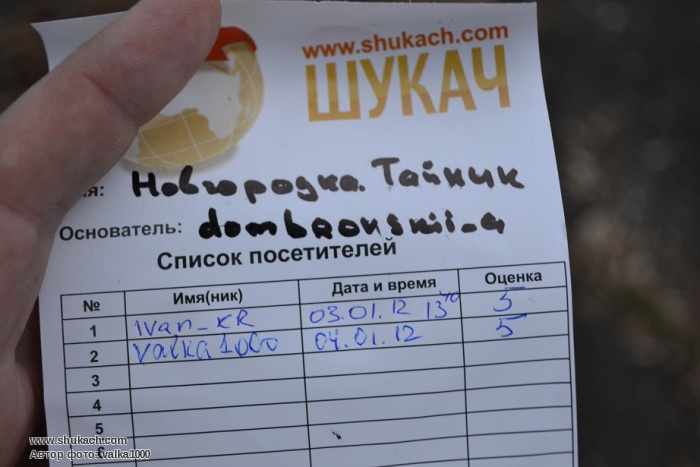 www.shukach.com
ШУКАЧ
я: Новгородка. Тайник
Основатель: dombrovskii_a
Список посетителей
№ Имя(ник) Дата и время Оценка
1 ivan_KR 03.01.12 13 40 5
2 valka1000 04.01.12 5
3
4
5
6
www.shukach.com
Автор фото:valka1000